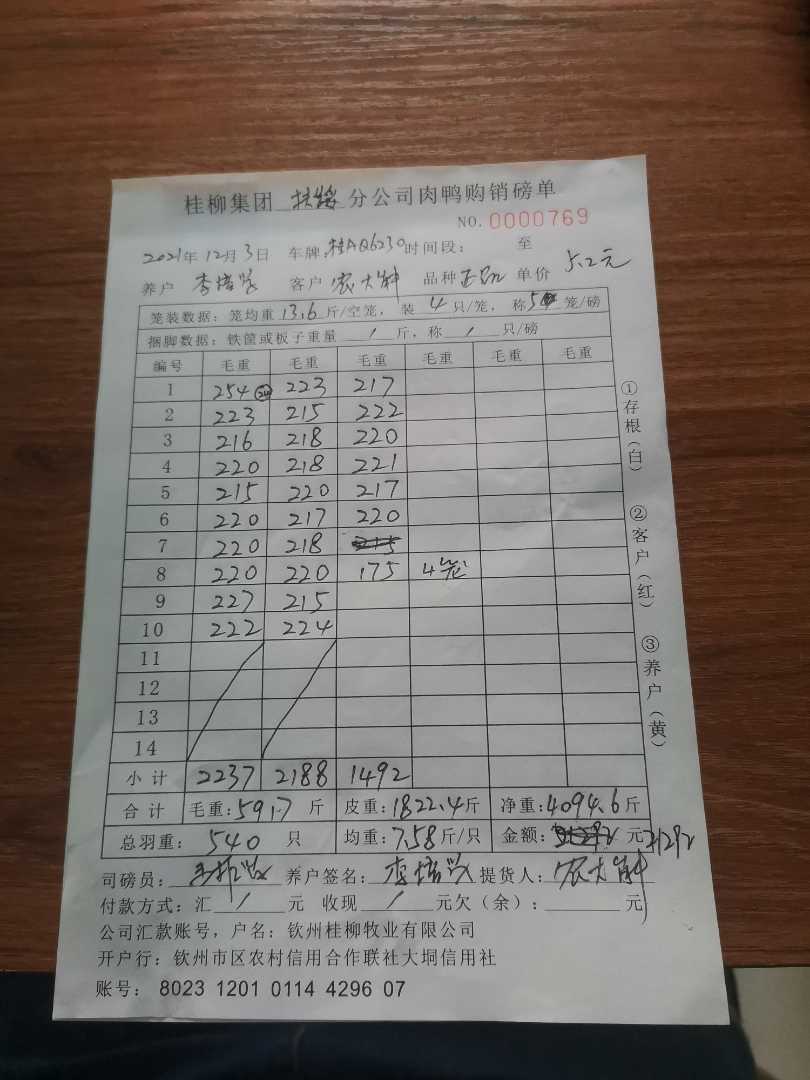 桂柳集团 扶绥 分公司肉鸭购销磅单
NO. 0000769
2021年12月3日 车牌:桂AQ6230时间段: 至
养户 李培兴 客户 农大科 品种 单价 5.2元
笼装数据: 笼均重 13.6 斤/空笼, 装 4 只/笼, 称 5 笼/磅
捆脚数据: 铁筐或板子重量 / 斤, 称 / 只/磅
编号 毛重 毛重 毛重 毛重 毛重 毛重
1 254 223 217
2 223 215 222
3 216 218 220
4 220 218 221
5 215 220 217
6 220 217 220
7 220 218 215
8 220 220 175 4笼
9 227 215
10 222 224
11
12
13
14
小计 2237 2188 1492
合计 毛重: 5917 斤 皮重: 1822.4斤 净重: 4094.6斤
总羽重: 540 只 均重: 7.58斤/只 金额: 元 21292
司磅员: 养户签名: 李培兴 提货人: 农大科
付款方式: 汇 / 元 收现 / 元欠(余): 元
公司汇款账号, 户名: 钦州桂柳牧业有限公司
开户行: 钦州市区农村信用合作联社大垌信用社
账号: 8023 1201 0114 4296 07
①存根(白)
②客户(红)
③养户(黄)